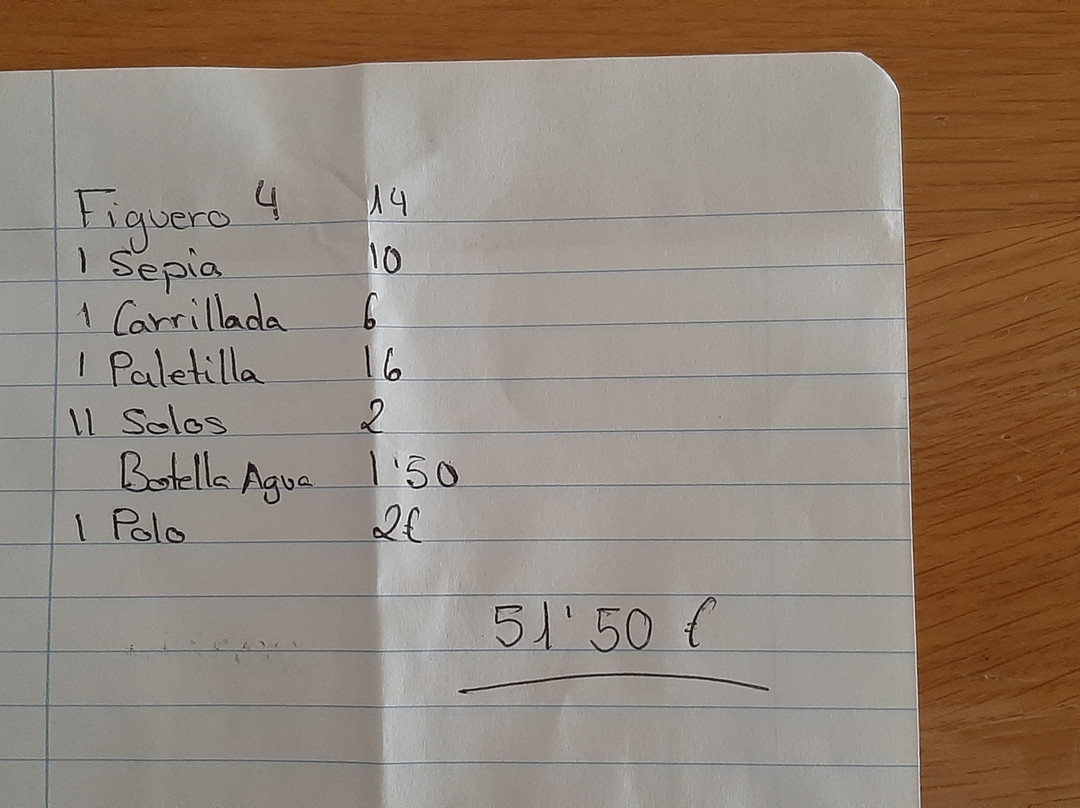 Figuero 4 14
1 Sepia 10
1 Carrillada 6
1 Paletilla 16
11 Solos 2
Botella Agua 1'50
1 Polo 2€
51'50 €